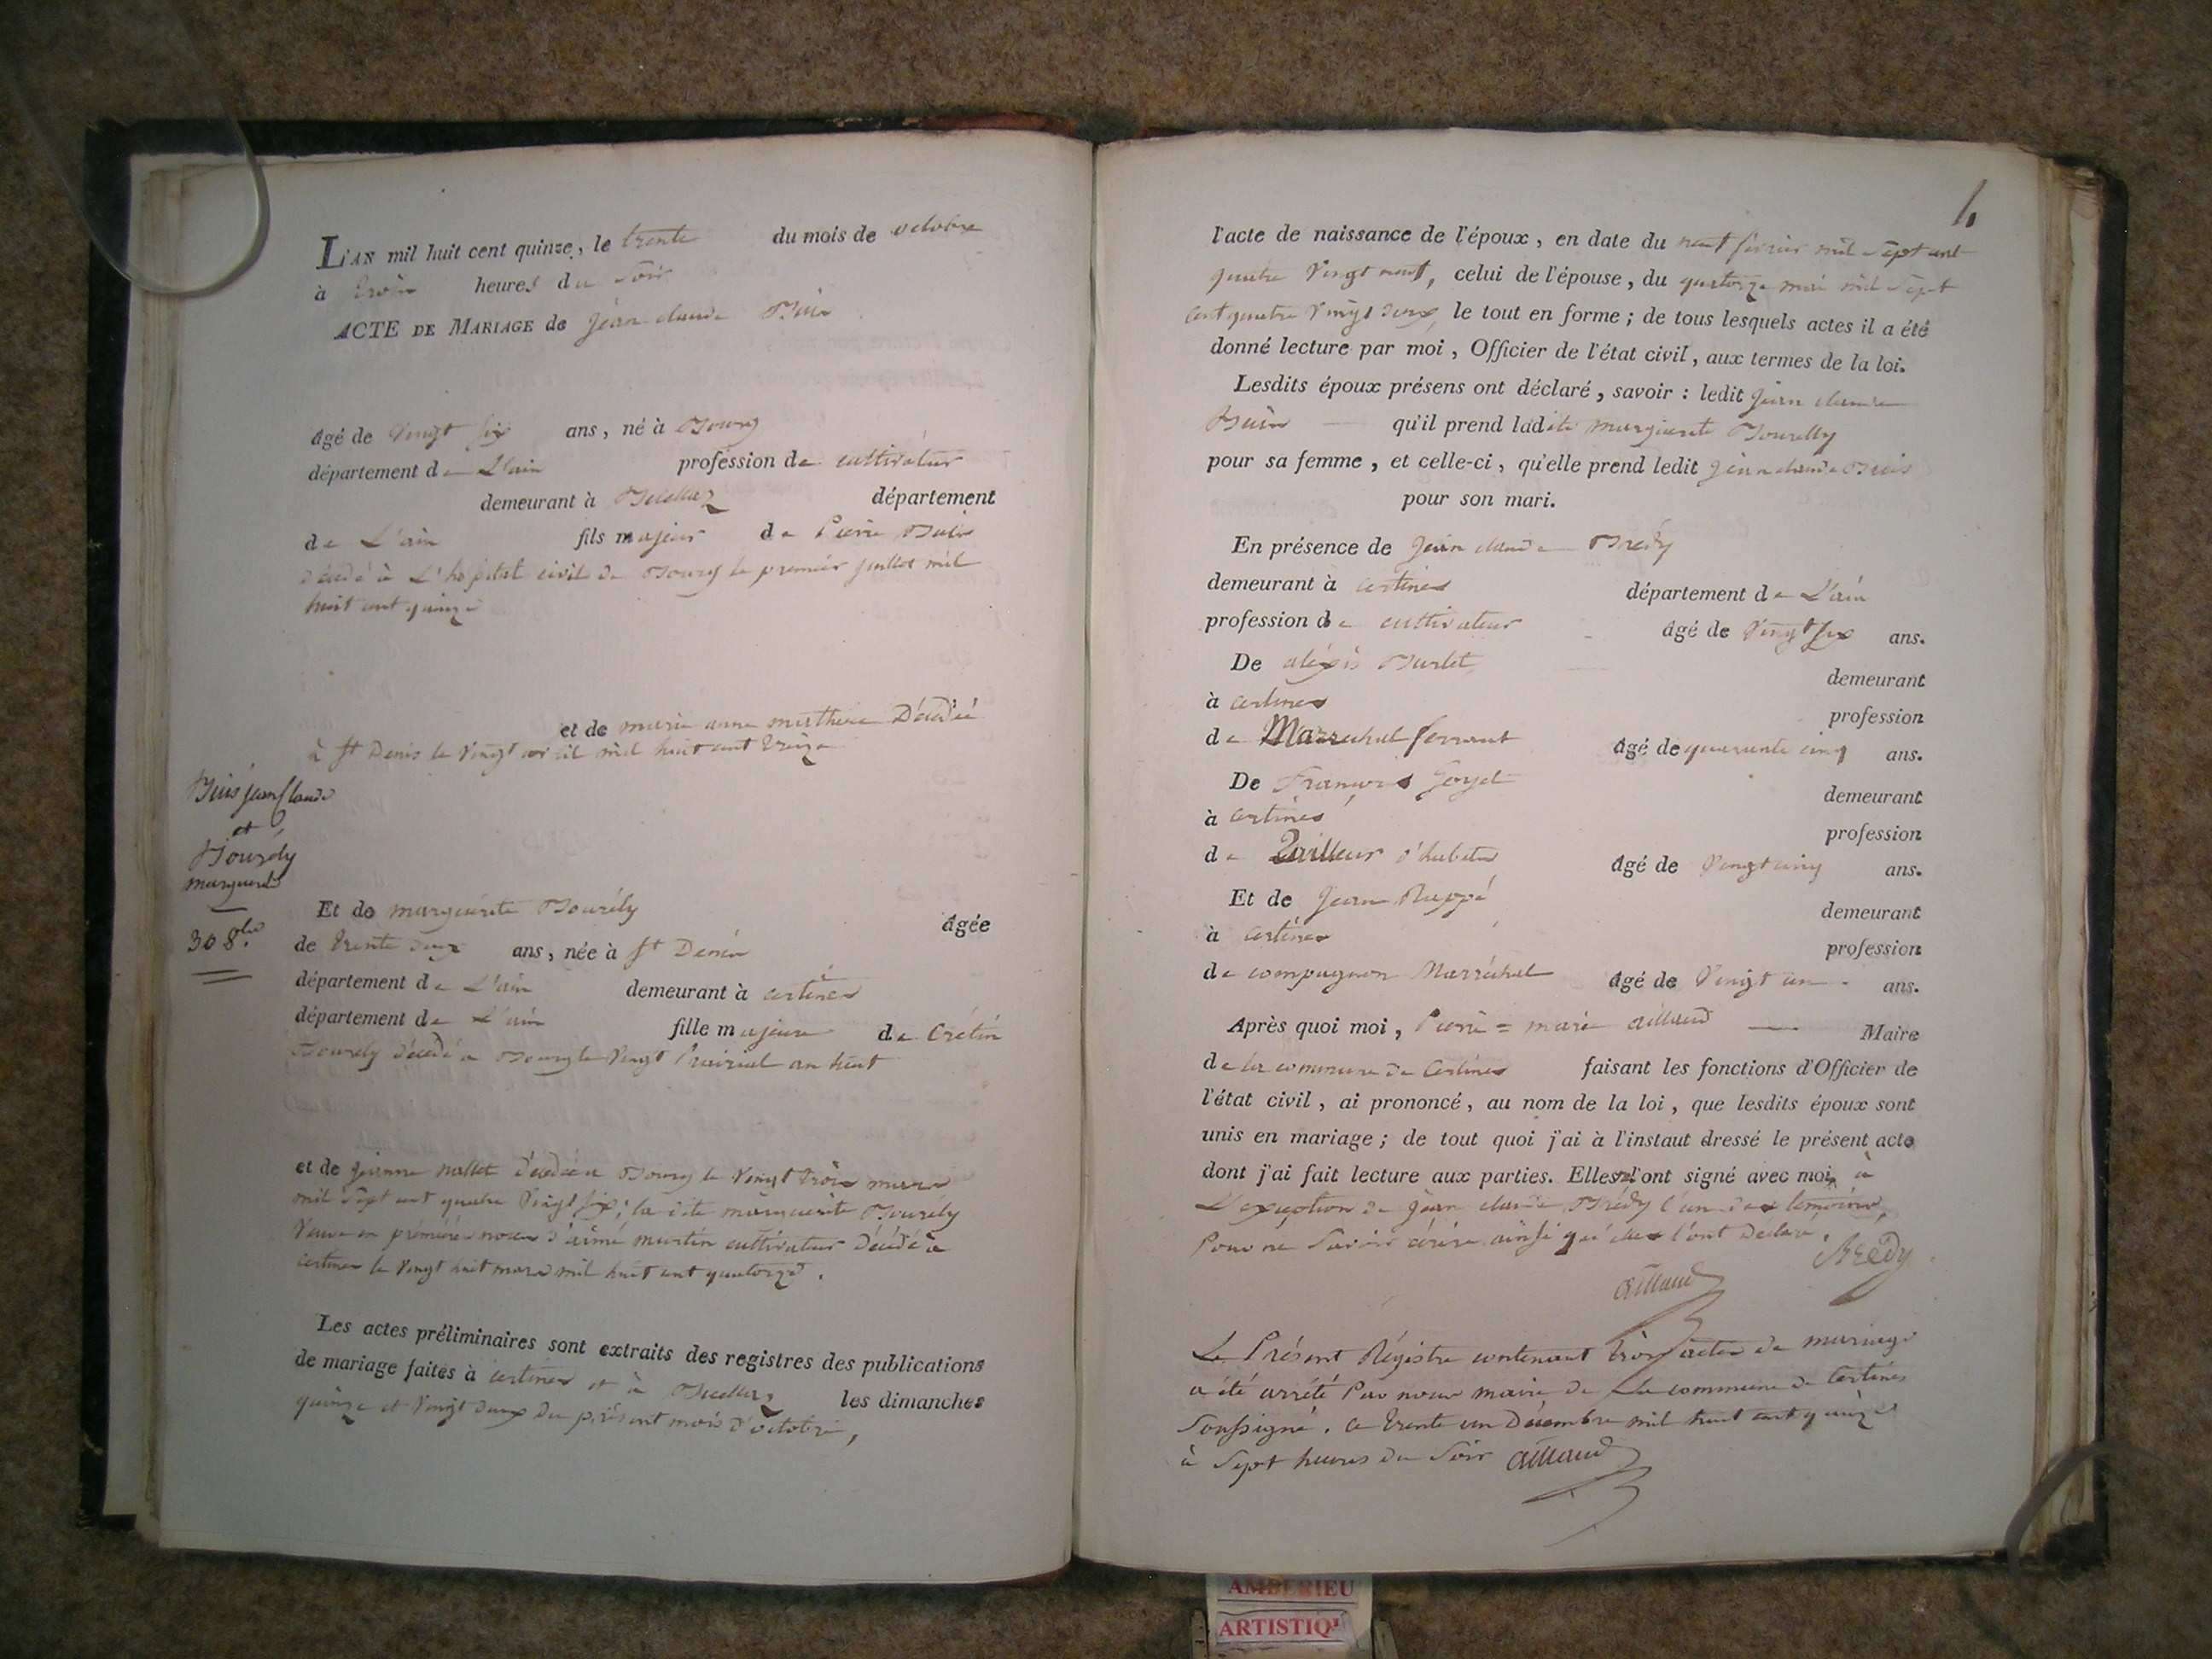 L'AN mil huit cent quinze, le trente du mois de octobre
à trois heures du soir
ACTE DE MARIAGE de jean claude Buis
âgé de vingt six ans, né à Bourg
département de L'ain profession de cultivateur
demeurant à département
de L'ain fils majeur de Pierre Buis
décédé à L'hopital civil de Bourg le premier juillet mil
huit cent quinze
et de marie anne décédée
à St Denis le vingt avril mil huit cent treize
Buis jean Claude
et
Bourély
marguerite
30 8bre
Et de marguerite Bourély âgée
de trente deux ans, née à St Denis
département de L'ain demeurant à certines
département de L'ain fille majeure de Crétin
Bourely décédé a Bourg le vingt Prairial an huit
et de jeanne mallet décédée a Bourg le vingt trois mars
mil sept cent quatre vingt six; la dite marguerite Bourély
veuve en premières noces d'aimé martin cultivateur décédé à
certines le vingt huit mars mil huit cent quatorze.
Les actes préliminaires sont extraits des registres des publications
de mariage faites à certines et à les dimanches
quinze et vingt deux du présent mois d'octobre,
l'acte de naissance de l'époux, en date du neuf février mil sept cent
quatre vingt neuf, celui de l'épouse, du quatorze mai mil sept
cent quatre vingt deux, le tout en forme; de tous lesquels actes il a été
donné lecture par moi, Officier de l'état civil, aux termes de la loi.
Lesdits époux présens ont déclaré, savoir: ledit jean claude
Buis qu'il prend ladite marguerite Bourelly
pour sa femme, et celle-ci, qu'elle prend ledit jean claude Buis
pour son mari.
En présence de jean claude Brédy
demeurant à certines département de L'ain
profession de cultivateur âgé de vingt six ans.
De aléxis Burlet demeurant
à certines profession
de Marrechal ferrant âgé de quarante cinq ans.
De François Goyet demeurant
à certines profession
de Tailleur d'habits âgé de vingt cinq ans.
Et de Jean Ruppé demeurant
à certines profession
de compagnon Marréchal âgé de vingt un ans.
Après quoi moi, Pierre = marie aillaud Maire
de la commune de Certines faisant les fonctions d'Officier de
l'état civil, ai prononcé, au nom de la loi, que lesdits époux sont
unis en mariage; de tout quoi j'ai à l'instaut dressé le présent acte
dont j'ai fait lecture aux parties. Elles n'ont signé avec moi, à
L'exception de jean claude Brédy l'un des temoins,
Pour ne savoir écrire ainsi qu'elles l'ont déclaré.
Bredy
aillaud
Le Présent Régistre contenant trois actes de mariage
a été arrété Par nous maire de La commune de Certines
soussigné. ce trente un Décembre mil huit cent quinze
à sept heures du soir aillaud
AMBERIEU
ARTISTIQ